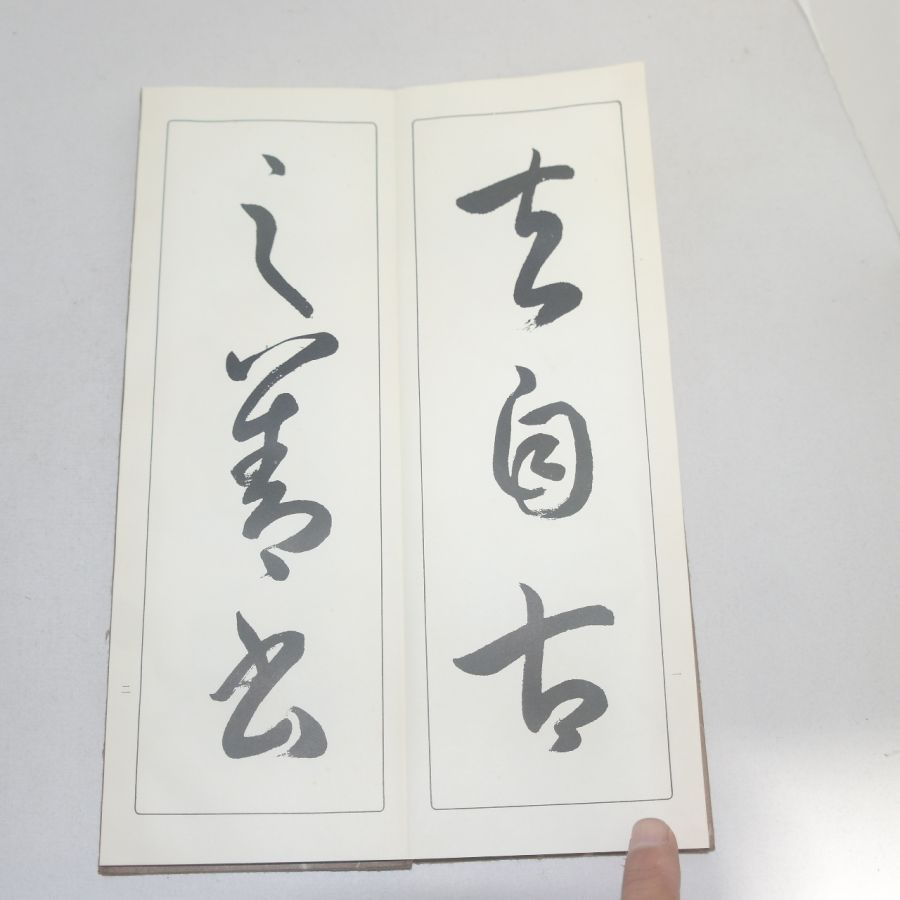 夫自古
一
之善書
二